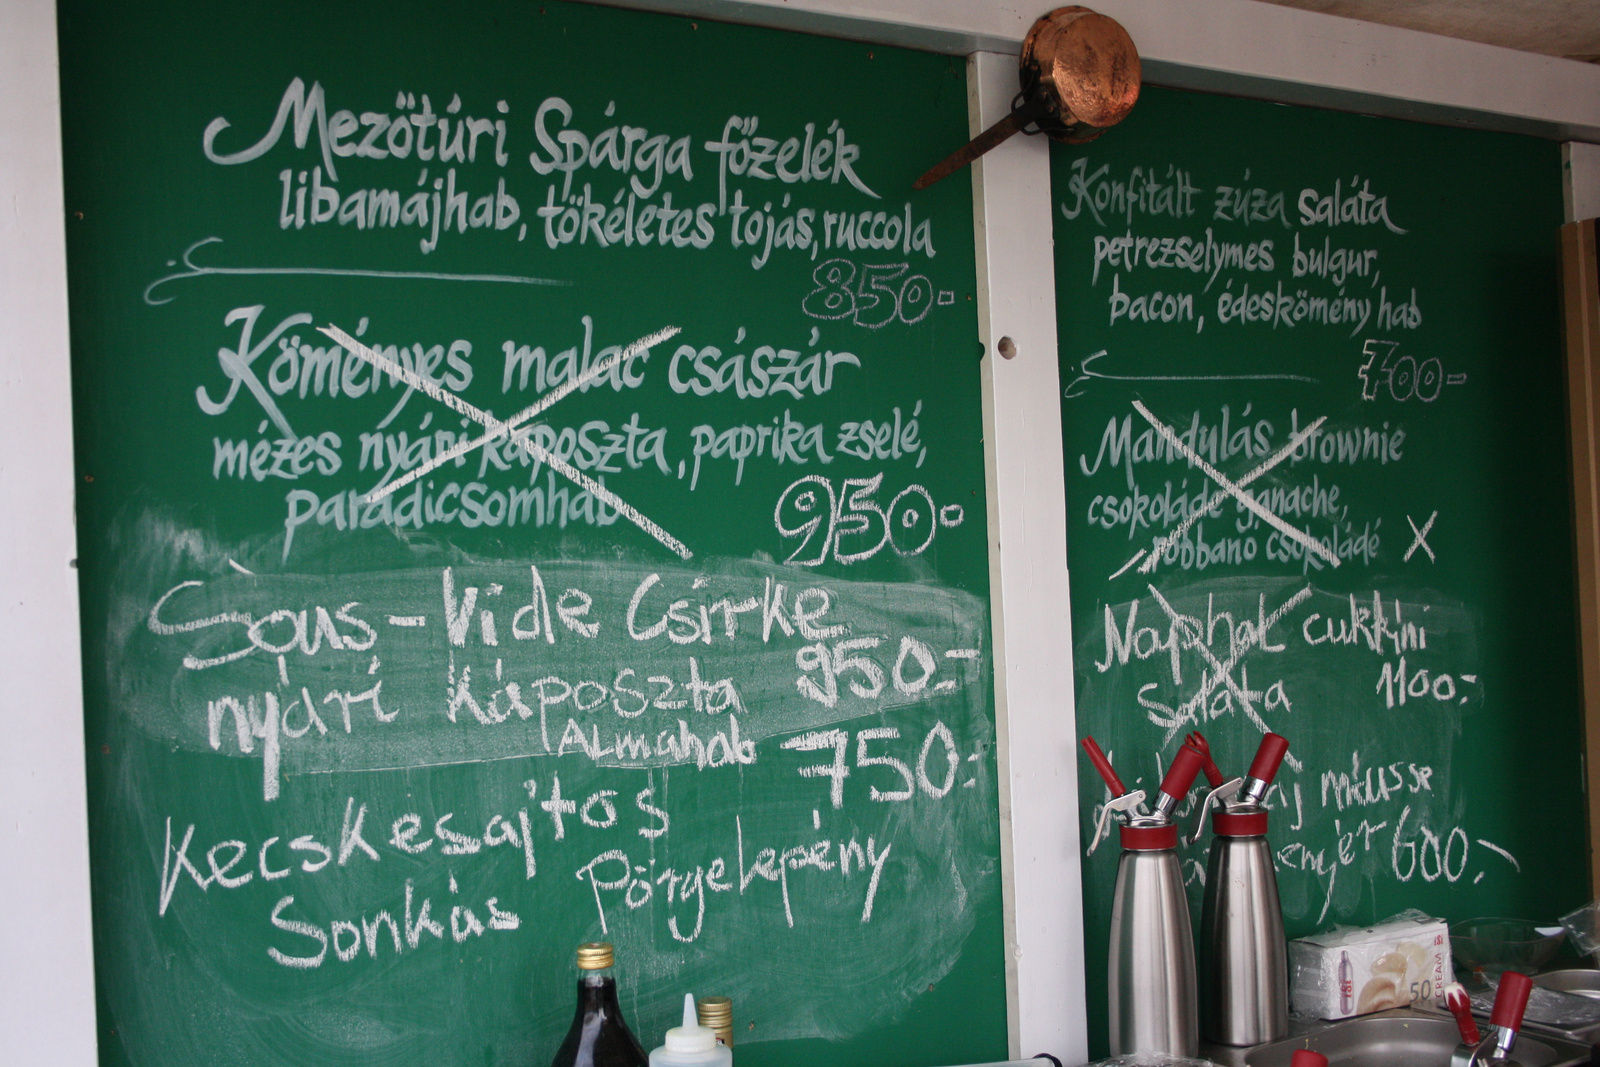 Mezőtúri Spárga főzelék
libamájhab, tökéletes tojás, ruccola
850-
Köményes malac császár
mézes nyári káposzta, paprika zselé,
paradicsomhab
950-
Sous-Vide Csirke
950.-
nyári káposzta
Almahab
750.-
Kecskesajtos
Sonkás Pörgelepény
Konfitált zúza saláta
petrezselymes bulgur,
bacon, édeskömény hab
700-
Mandulás brownie
csokoládé ganache,
robbanó csokoládé X
Naphal cukkini
saláta
1100.-
máj mousse
600.-
iSi
50
CREAM